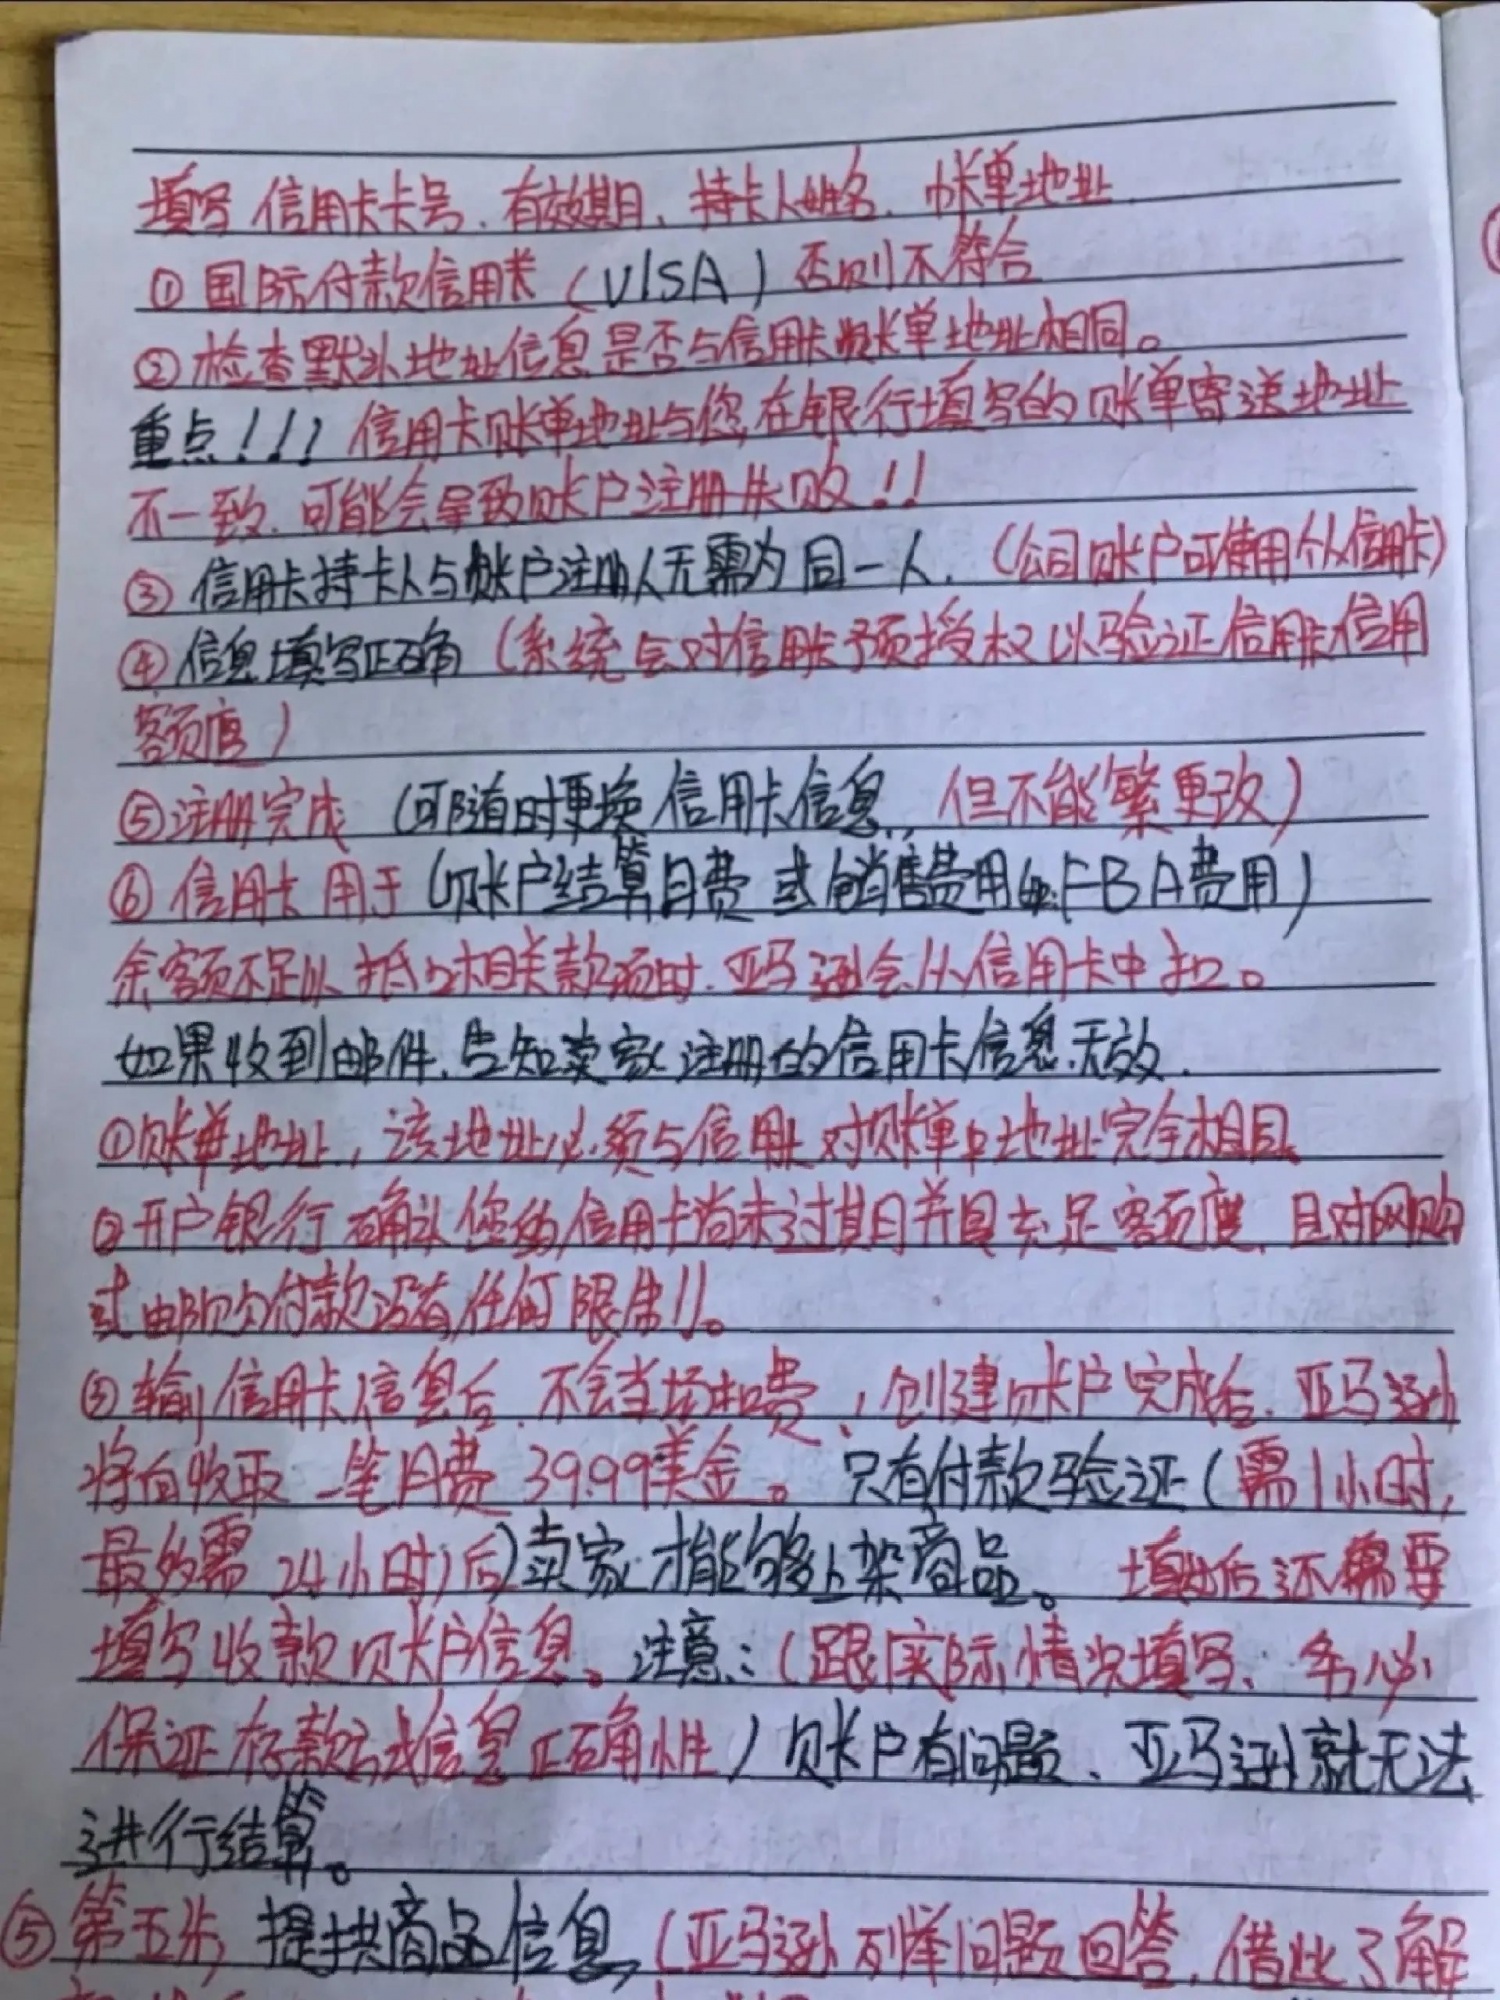 填写信用卡卡号、有效期日、持卡人姓名、帐单地址
①国际付款信用卡(VISA)否则不符合
②检查默认地址信息是否与信用卡账单地址相同。
重点!!!信用卡账单地址与您在银行填写的账单寄送地址
不一致、可能会导致账户注册失败!!
③信用卡持卡人与账户注册人无需为同一人.(公司账户可使用个人信用卡)
④信息填写正确(系统会对信用卡预授权以验证信用卡信用
额度)
⑤注册完成(可随时更换信用卡信息,但不能繁更改)
⑥信用卡用于(账户结算月费或销售费用如:FBA费用)
余额不足以抵相关款项时.亚马逊会从信用卡中扣。
如果收到邮件、告知卖家注册的信用卡信息无效.
①账单地址,该地址必须与信用卡对账单中地址完全相同
②开户银行确认您的信用卡尚未过期并具充足额度、且对网购
或邮购付款没有任何限制。
③输信用卡信息后.不会当场扣费,创建账户完成后.亚马逊
将会收取一笔月费39.99美金。只有付款验证(需1小时,
最多需24小时后)卖家才能够上架商品。填此后还需要
填写收款账户信息。注意:(跟实际情况填写、务必
保证存款方式信息正确性)账户有问题、亚马逊就无法
进行结算。
⑤第五步,提供商品信息,(亚马逊列举问题回答,借此了解